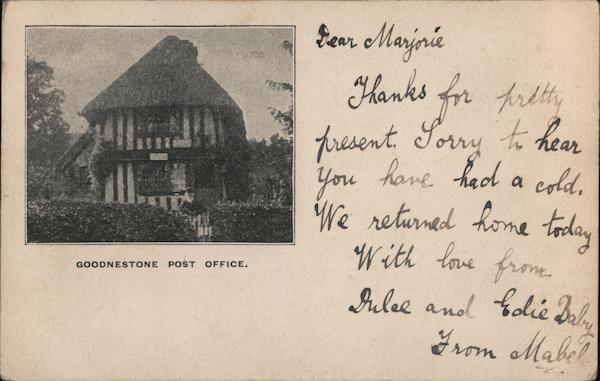 GOODNESTONE POST OFFICE.
Dear Marjorie
Thanks for pretty
present. Sorry to hear
you have had a cold.
We returned home today
With love from
Dulce and Edie Baby
From Mabel